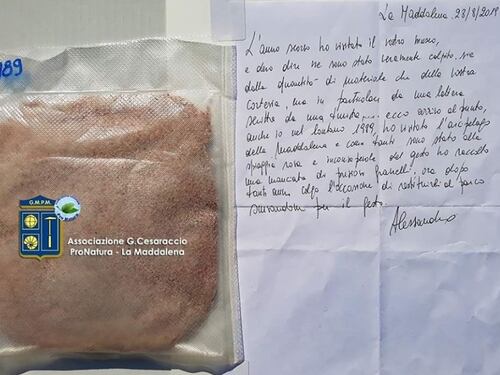 989
G.M.P.M.
Associazione G.Cesaraccio
ProNatura - La Maddalena
La Maddalena, 28/8/2019
L'anno scorso ho visitato il vostro museo,
e devo dire ne sono stato veramente colpito, sia
dalla quantità di materiale che dalla vostra
cortesia, ma in particolare da una lettera
scritta da una turista..... ecco arrivo al punto,
anche io nel lontano 1989, ho visitato l'arcipelago
della Maddalena e come tanti sono stato alla
spiaggia rosa e inconsapevole del gesto ho raccolto
una manciata di preziosi granelli, ora dopo
tanti anni colgo l'occasione di restituirli al parco
scusandomi per il gesto.
Alessandro